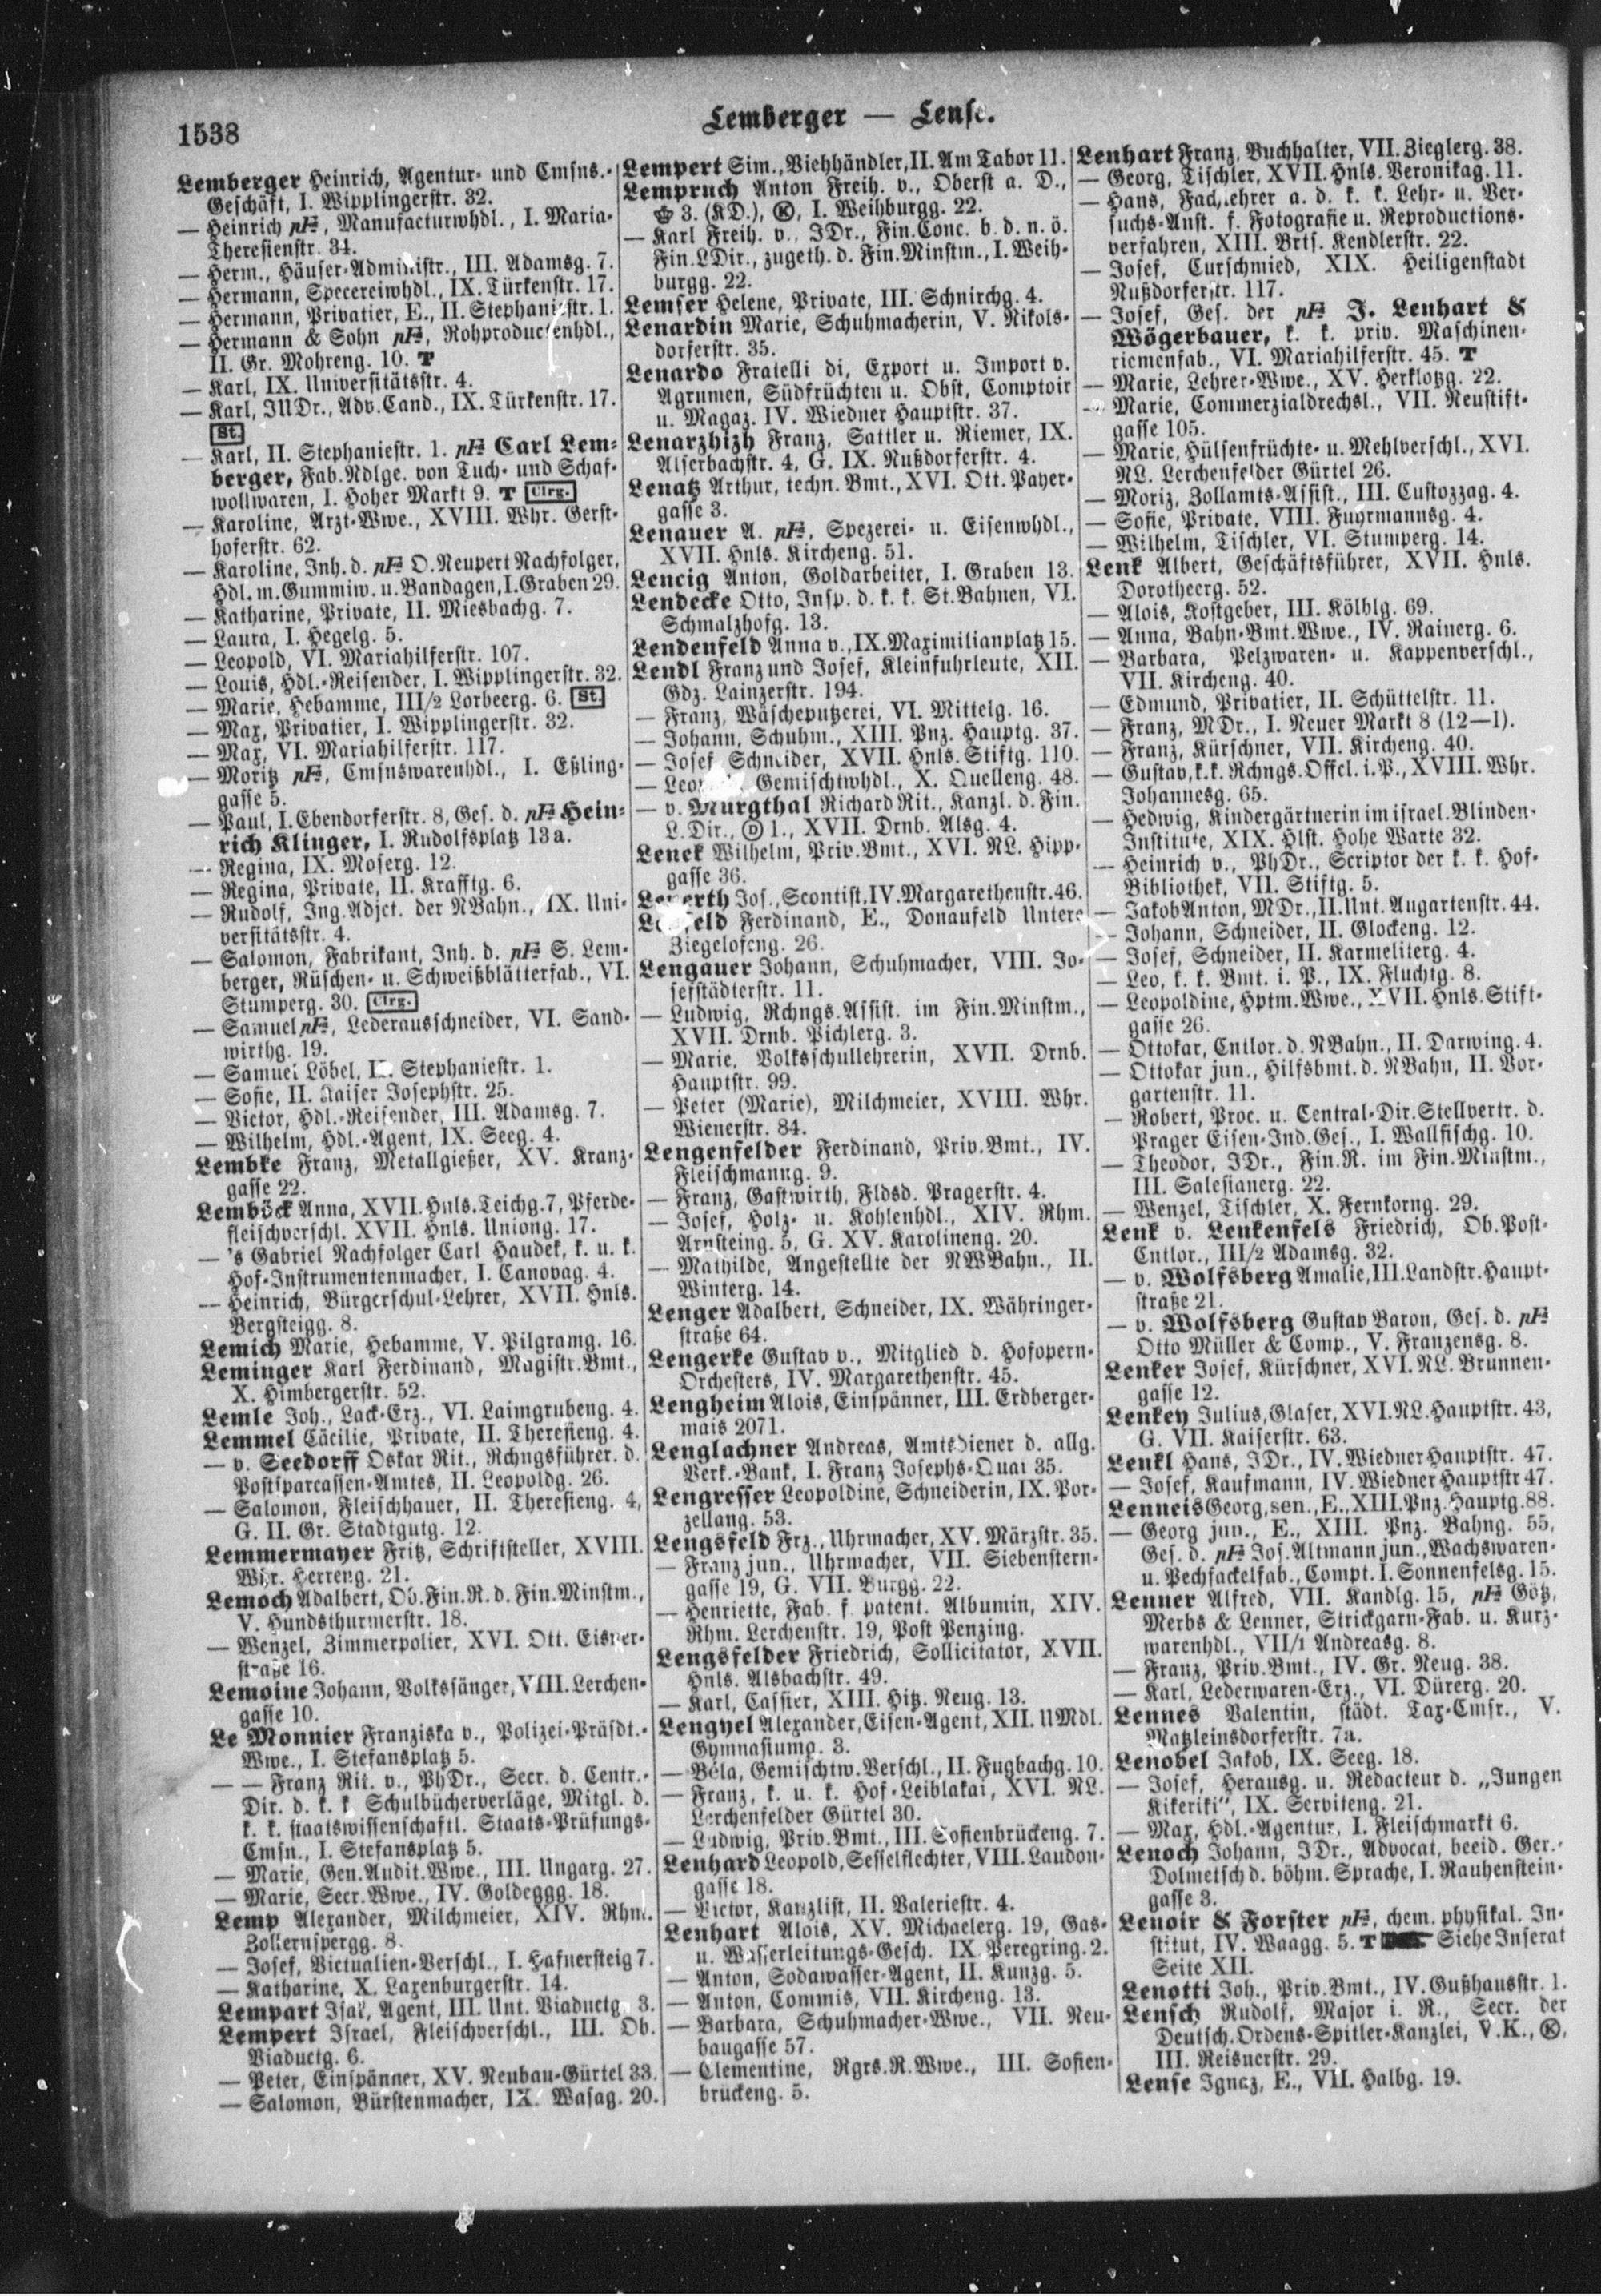 1538
Lemberger — Lense.
Lemberger Heinrich, Agentur- und Cmsns.-
Geschäft, I. Wipplingerstr. 32.
— Heinrich pF, Manufacturwhdl., I. Maria-
Theresienstr. 34.
— Herm., Häuser-Administr., III. Adamsg. 7.
— Hermann, Specereiwhdl., IX. Türkenstr. 17.
— Hermann, Privatier, E., II. Stephaniestr. 1.
— Hermann & Sohn pF, Rohproductenhdl.,
II. Gr. Mohreng. 10. T
— Karl, IX. Universitätsstr. 4.
— Karl, JUDr., Adv.Cand., IX. Türkenstr. 17.
St.
— Karl, II. Stephaniestr. 1. pF Carl Lem-
berger, Fab.Ndlge. von Tuch- und Schaf-
wollwaren, I. Hoher Markt 9. T Clrg.
— Karoline, Arzt-Wwe., XVIII. Whr. Gerst-
hoferstr. 62.
— Karoline, Inh. d. pF O. Neupert Nachfolger,
Hdl. m. Gummiw. u. Bandagen, I. Graben 29.
— Katharine, Private, II. Miesbachg. 7.
— Laura, I. Hegelg. 5.
— Leopold, VI. Mariahilferstr. 107.
— Louis, Hdl.-Reisender, I. Wipplingerstr. 32.
— Marie, Hebamme, III/2 Lorbeerg. 6. St.
— Max, Privatier, I. Wipplingerstr. 32.
— Max, VI. Mariahilferstr. 117.
— Moritz pF, Cmsnswarenhdl., I. Eßling-
gasse 5.
— Paul, I. Ebendorferstr. 8, Ges. d. pF Hein-
rich Klinger, I. Rudolfsplatz 13a.
— Regina, IX. Moserg. 12.
— Regina, Private, II. Krafftg. 6.
— Rudolf, Ing.Adjct. der NBahn., IX. Uni-
versitätsstr. 4.
— Salomon, Fabrikant, Inh. d. pF S. Lem-
berger, Rüschen- u. Schweißblätterfab., VI.
Stumperg. 30. Clrg.
— Samuel pF, Lederausschneider, VI. Sand-
wirthg. 19.
— Samuel Löbel, Stephaniestr. 1.
— Sofie, II. Kaiser Josephstr. 25.
— Victor, Hdl.-Reisender, III. Adamsg. 7.
— Wilhelm, Hdl.-Agent, IX. Seeg. 4.
Lembke Franz, Metallgießer, XV. Kranz-
gasse 22.
Lemböck Anna, XVII. Hnls. Teichg. 7, Pferde-
fleischverschl. XVII. Hnls. Uniong. 17.
— 's Gabriel Nachfolger Carl Haudek, k. u. k.
Hof-Instrumentenmacher, I. Canovag. 4.
— Heinrich, Bürgerschul-Lehrer, XVII. Hnls.
Bergsteigg. 8.
Lemich Marie, Hebamme, V. Pilgramg. 16.
Leminger Karl Ferdinand, Magistr.Bmt.,
X. Himbergerstr. 52.
Lemle Joh., Lack-Erz., VI. Laimgrubeng. 4.
Lemmel Cäcilie, Private, II. Theresieng. 4.
— v. Seedorff Oskar Rit., Rchngsführer. d.
Postsparcassen-Amtes, II. Leopoldg. 26.
— Salomon, Fleischhauer, II. Theresieng. 4,
G. II. Gr. Stadtgutg. 12.
Lemmermayer Fritz, Schriftsteller, XVIII.
Whr. Herreng. 21.
Lemoch Adalbert, Ob.Fin.R. d. Fin.Minstm.,
V. Hundsthurmerstr. 18.
— Wenzel, Zimmerpolier, XVI. Ott. Eisner-
straße 16.
Lemoine Johann, Volkssänger, VIII. Lerchen-
gasse 10.
Le Monnier Franziska v., Polizei-Präsdt.-
Wwe., I. Stefansplatz 5.
— — Franz Rit. v., PhDr., Secr. d. Centr.-
Dir. d. k. k. Schulbücherverläge, Mitgl. d.
k. k. staatswissenschaftl. Staats-Prüfungs-
Cmsn., I. Stefansplatz 5.
— Marie, Gen.Audit.Wwe., III. Ungarg. 27.
— Marie, Secr.Wwe., IV. Goldeggg. 18.
Lemp Alexander, Milchmeier, XIV. Rhm.
Zollernspergg. 8.
— Josef, Victualien-Verschl., I. Hafnersteig 7.
— Katharine, X. Laxenburgerstr. 14.
Lempart Isak, Agent, III. Unt. Viaductg. 3.
Lempert Israel, Fleischverschl., III. Ob.
Viaductg. 6.
— Peter, Einspänner, XV. Neubau-Gürtel 33.
— Salomon, Bürstenmacher, IX. Wasag. 20.
Lempert Sim., Viehhändler, II. Am Tabor 11.
Lempruch Anton Freih. v., Oberst a. D.,
3. (KD.), K, I. Weihburgg. 22.
— Karl Freih. v., JDr., Fin.Conc. b. d. n. ö.
Fin.LDir., zugeth. d. Fin.Minstm., I. Weih-
burgg. 22.
Lemser Helene, Private, III. Schnirchg. 4.
Lenardin Marie, Schuhmacherin, V. Nikols-
dorferstr. 35.
Lenardo Fratelli di, Export u. Import v.
Agrumen, Südfrüchten u. Obst, Comptoir
u. Magaz. IV. Wiedner Hauptstr. 37.
Lenarzhizh Franz, Sattler u. Riemer, IX.
Alserbachstr. 4, G. IX. Nußdorferstr. 4.
Lenatz Arthur, techn. Bmt., XVI. Ott. Payer-
gasse 3.
Lenauer A. pF, Spezerei- u. Eisenwhdl.,
XVII. Hnls. Kircheng. 51.
Lencig Anton, Goldarbeiter, I. Graben 13.
Lendecke Otto, Insp. d. k. k. St.Bahnen, VI.
Schmalzhofg. 13.
Lendenfeld Anna v., IX. Maximilianplatz 15.
Lendl Franz und Josef, Kleinfuhrleute, XII.
Gdz. Lainzerstr. 194.
— Franz, Wäscheputzerei, VI. Mittelg. 16.
— Johann, Schuhm., XIII. Pnz. Hauptg. 37.
— Josef Schneider, XVII. Hnls. Stiftg. 110.
— Gemischtwhdl., X. Quelleng. 48.
— v. Murgthal Richard Rit., Kanzl. d. Fin.
L.Dir., D 1., XVII. Drnb. Alsg. 4.
Lenek Wilhelm, Priv.Bmt., XVI. NL. Hipp-
gasse 36.
Jos., Scontist, IV. Margarethenstr. 46.
Ferdinand, E., Donaufeld Untere
Ziegelofeng. 26.
Lengauer Johann, Schuhmacher, VIII. Jo-
sefstädterstr. 11.
— Ludwig, Rchngs.Assist. im Fin.Minstm.,
XVII. Drnb. Pichlerg. 3.
— Marie, Volksschullehrerin, XVII. Drnb.
Hauptstr. 99.
— Peter (Marie), Milchmeier, XVIII. Whr.
Wienerstr. 84.
Lengenfelder Ferdinand, Priv.Bmt., IV.
Fleischmanng. 9.
— Franz, Gastwirth, Fldsd. Pragerstr. 4.
— Josef, Holz- u. Kohlenhdl., XIV. Rhm.
Arnsteing. 5, G. XV. Karolineng. 20.
— Mathilde, Angestellte der NWBahn., II.
Winterg. 14.
Lenger Adalbert, Schneider, IX. Währinger-
straße 64.
Lengerke Gustav v., Mitglied d. Hofopern-
Orchesters, IV. Margarethenstr. 45.
Lengheim Alois, Einspänner, III. Erdberger-
mais 2071.
Lenglachner Andreas, Amtsdiener d. allg.
Verk.-Bank, I. Franz Josephs-Quai 35.
Lengresser Leopoldine, Schneiderin, IX. Por-
zellang. 53.
Lengsfeld Frz., Uhrmacher, XV. Märzstr. 35.
— Franz jun., Uhrmacher, VII. Siebenstern-
gasse 19, G. VII. Burgg. 22.
— Henriette, Fab. f. patent. Albumin, XIV.
Rhm. Lerchenstr. 19, Post Penzing.
Lengsfelder Friedrich, Sollicitator, XVII.
Hnls. Alsbachstr. 49.
— Karl, Cassier, XIII. Hitz. Neug. 13.
Lengyel Alexander, Eisen-Agent, XII. UMdl.
Gymnasiumg. 3.
— Béla, Gemischtw.Verschl., II. Fugbachg. 10.
— Franz, k. u. k. Hof-Leiblakai, XVI. NL.
Lerchenfelder Gürtel 30.
— Ludwig, Priv.Bmt., III. Sofienbrückeng. 7.
Lenhard Leopold, Sesselflechter, VIII. Laudon-
gasse 18.
— Victor, Kanzlist, II. Valeriestr. 4.
Lenhart Alois, XV. Michaelerg. 19, Gas-
u. Wasserleitungs-Gesch. IX. Peregring. 2.
— Anton, Sodawasser-Agent, II. Kunzg. 5.
— Anton, Commis, VII. Kircheng. 13.
— Barbara, Schuhmacher-Wwe., VII. Neu-
baugasse 57.
— Clementine, Rgrs.R.Wwe., III. Sofien-
brückeng. 5.
Lenhart Franz, Buchhalter, VII. Zieglerg. 38.
— Georg, Tischler, XVII. Hnls. Veronikag. 11.
— Hans, Fachlehrer a. d. k. k. Lehr- u. Ver-
suchs-Anst. f. Fotografie u. Reproductions-
verfahren, XIII. Brts. Kendlerstr. 22.
— Josef, Curschmied, XIX. Heiligenstadt
Nußdorferstr. 117.
— Josef, Ges. der pF J. Lenhart &
Wögerbauer, k. k. priv. Maschinen-
riemenfab., VI. Mariahilferstr. 45. T
— Marie, Lehrer-Wwe., XV. Herklotzg. 22.
— Marie, Commerzialdrechsl., VII. Neustift-
gasse 105.
— Marie, Hülsenfrüchte- u. Mehlverschl., XVI.
NL. Lerchenfelder Gürtel 26.
— Moriz, Zollamts-Assist., III. Custozzag. 4.
— Sofie, Private, VIII. Fuhrmannsg. 4.
— Wilhelm, Tischler, VI. Stumperg. 14.
Lenk Albert, Geschäftsführer, XVII. Hnls.
Dorotheerg. 52.
— Alois, Kostgeber, III. Kölblg. 69.
— Anna, Bahn-Bmt.Wwe., IV. Rainerg. 6.
— Barbara, Pelzwaren- u. Kappenverschl.,
VII. Kircheng. 40.
— Edmund, Privatier, II. Schüttelstr. 11.
— Franz, MDr., I. Neuer Markt 8 (12—1).
— Franz, Kürschner, VII. Kircheng. 40.
— Gustav, k. k. Rchngs.Offcl. i. P., XVIII. Whr.
Johannesg. 65.
— Hedwig, Kindergärtnerin im israel. Blinden-
Institute, XIX. Hlst. Hohe Warte 32.
— Heinrich v., PhDr., Scriptor der k. k. Hof-
Bibliothek, VII. Stiftg. 5.
— Jakob Anton, MDr., II. Unt. Augartenstr. 44.
— Johann, Schneider, II. Glockeng. 12.
— Josef, Schneider, II. Karmeliterg. 4.
— Leo, k. k. Bmt. i. P., IX. Fluchtg. 8.
— Leopoldine, Hptm.Wwe., XVII. Hnls. Stift-
gasse 26.
— Ottokar, Cntlor. d. NBahn., II. Darwing. 4.
— Ottokar jun., Hilfsbmt. d. NBahn, II. Vor-
gartenstr. 11.
— Robert, Proc. u. Central-Dir.Stellvertr. d.
Prager Eisen-Ind.Ges., I. Wallfischg. 10.
— Theodor, JDr., Fin.R. im Fin.Minstm.,
III. Salesianerg. 22.
— Wenzel, Tischler, X. Fernkorng. 29.
Lenk v. Lenkenfels Friedrich, Ob.Post-
Cntlor., III/2 Adamsg. 32.
— v. Wolfsberg Amalie, III. Landstr. Haupt-
straße 21.
— v. Wolfsberg Gustav Baron, Ges. d. pF
Otto Müller & Comp., V. Franzensg. 8.
Lenker Josef, Kürschner, XVI. NL. Brunnen-
gasse 12.
Lenkey Julius, Glaser, XVI. NL. Hauptstr. 43,
G. VII. Kaiserstr. 63.
Lenkl Hans, JDr., IV. Wiedner Hauptstr. 47.
— Josef, Kaufmann, IV. Wiedner Hauptstr 47.
Lenneis Georg, sen., E., XIII. Pnz. Hauptg. 88.
— Georg jun., E., XIII. Pnz. Bahng. 55,
Ges. d. pF Jos. Altmann jun., Wachswaren-
u. Pechfackelfab., Compt. I. Sonnenfelsg. 15.
Lenner Alfred, VII. Kandlg. 15, pF Götz,
Merbs & Lenner, Strickgarn-Fab. u. Kurz-
warenhdl., VII/1 Andreasg. 8.
— Franz, Priv.Bmt., IV. Gr. Neug. 38.
— Karl, Lederwaren-Erz., VI. Dürerg. 20.
Lennes Valentin, städt. Tax-Cmsr., V.
Matzleinsdorferstr. 7a.
Lenobel Jakob, IX. Seeg. 18.
— Josef, Herausg. u. Redacteur d. „Jungen
Kikeriki“, IX. Serviteng. 21.
— Max, Hdl.-Agentur, I. Fleischmarkt 6.
Lenoch Johann, JDr., Advocat, beeid. Ger.-
Dolmetsch d. böhm. Sprache, I. Rauhenstein-
gasse 3.
Lenoir & Forster pF, chem. physikal. In-
stitut, IV. Waagg. 5. T Siehe Inserat
Seite XII.
Lenotti Joh., Priv.Bmt., IV. Gußhausstr. 1.
Lensch Rudolf, Major i. R., Secr. der
Deutsch.Ordens-Spitler-Kanzlei, V.K., K,
III. Reisnerstr. 29.
Lense Ignaz, E., VII. Halbg. 19.